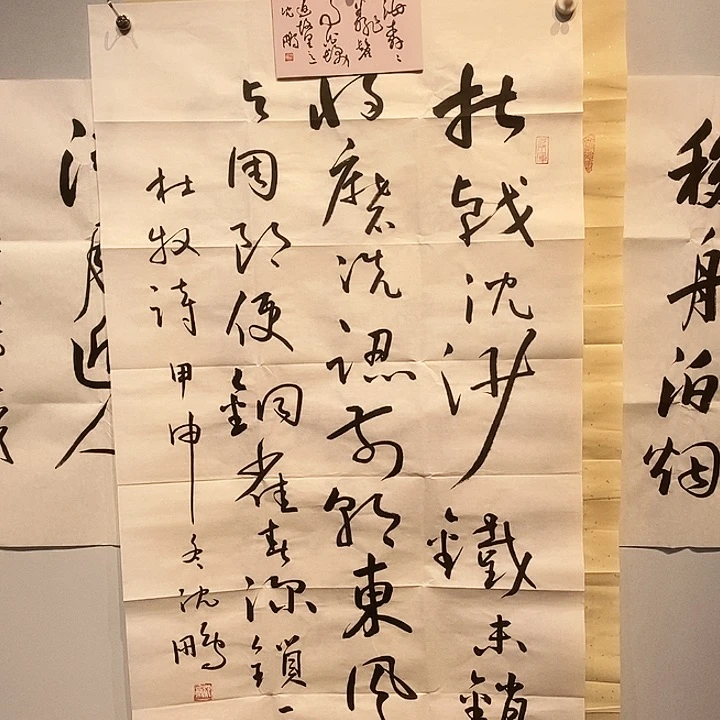 移舟泊烟
折戟沈沙鐵未銷
將磨洗認前朝東風
与周郎便銅雀春深鎖
杜牧詩 甲申冬沈鵬
月近人
沈鵬